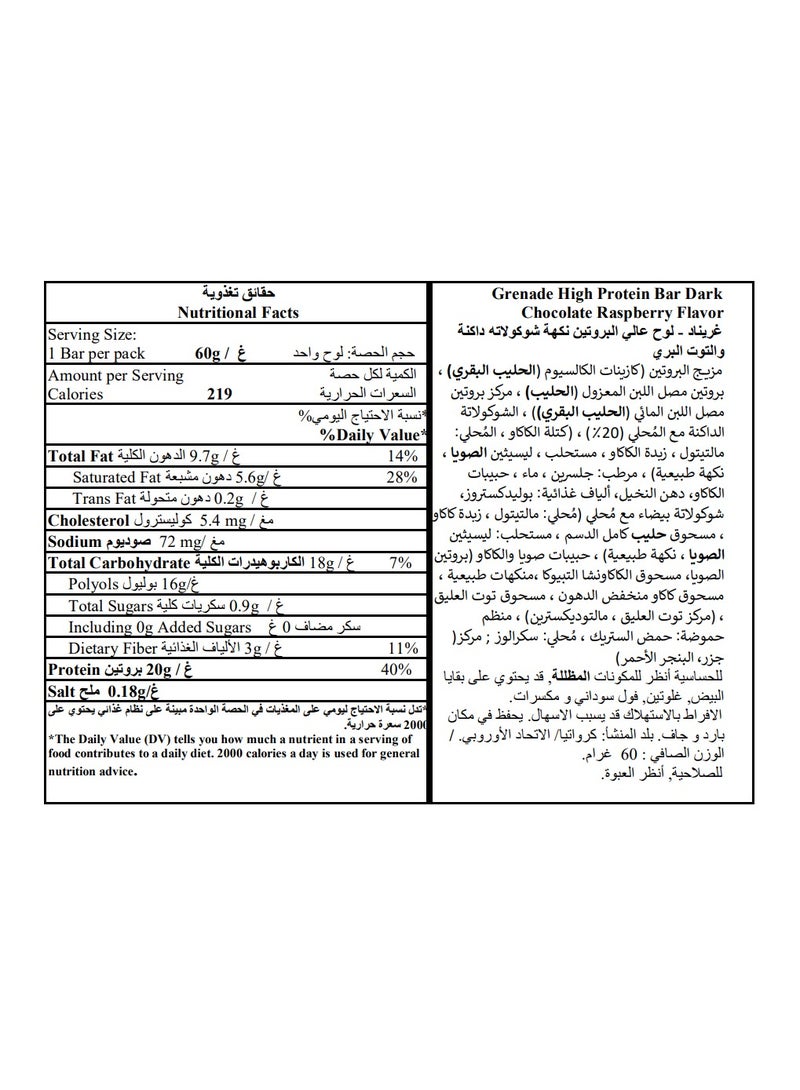 حقائق تغذوية
Nutritional Facts
Serving Size:
1 Bar per pack 60g / غ حجم الحصة: لوح واحد
Amount per Serving الكمية لكل حصة
Calories 219 السعرات الحرارية
*نسبة الاحتياج اليومي%
%Daily Value*
Total Fat الدهون الكلية 9.7g / غ 14%
Saturated Fat دهون مشبعة 5.6g/ غ 28%
Trans Fat دهون متحولة 0.2g / غ
Cholesterol كوليسترول 5.4 mg / مغ
Sodium صوديوم 72 mg/ مغ
Total Carbohydrate الكاربوهيدرات الكلية 18g / غ 7%
Polyols بوليول 16g/غ
Total Sugars سكريات كلية 0.9g / غ
Including 0g Added Sugars سكر مضاف 0 غ
Dietary Fiber الألياف الغذائية 3g / غ 11%
Protein بروتين 20g / غ 40%
Salt ملح 0.18g/غ
*تدل نسبة الاحتياج ليومي على المغذيات في الحصة الواحدة مبينة على نظام غذائي يحتوي على
2000 سعرة حرارية.
*The Daily Value (DV) tells you how much a nutrient in a serving of
food contributes to a daily diet. 2000 calories a day is used for general
nutrition advice.
Grenade High Protein Bar Dark
Chocolate Raspberry Flavor
غريناد - لوح عالي البروتين نكهة شوكولاته داكنة
والتوت البري
مزيج البروتين (كازينات الكالسيوم (الحليب البقري) ،
بروتين مصل اللبن المعزول (الحليب) ، مركز بروتين
مصل اللبن المائي (الحليب البقري)) ، الشوكولاتة
الداكنة مع المُحلي (20٪) ، (كتلة الكاكاو ، المُحلي:
مالتيتول ، زبدة الكاكاو ، مستحلب ، ليسيثين الصويا ،
نكهة طبيعية) ، مرطب: جلسرين ، ماء ، حبيبات
الكاكاو، دهن النخيل، ألياف غذائية: بوليدكستروز،
شوكولاتة بيضاء مع مُحلي (مُحلي: مالتيتول ، زبدة كاكاو
، مسحوق حليب كامل الدسم ، مستحلب: ليسيثين
الصويا ، نكهة طبيعية) ، حبيبات صويا والكاكاو (بروتين
الصويا، مسحوق الكاكاونشا التبيوكا ،منكهات طبيعية ،
مسحوق كاكاو منخفض الدهون ، مسحوق توت العليق
، (مركز توت العليق ، مالتوديكسترين) ، منظم
حموضة: حمض الستريك ، مُحلي: سكرالوز ; مركز(
جزر، البنجر الأحمر)
للحساسية أنظر للمكونات المظللة, قد يحتوي على بقايا
البيض, غلوتين, فول سوداني و مكسرات.
الافراط بالاستهلاك قد يسبب الاسهال. يحفظ في مكان
بارد و جاف. بلد المنشأ: كرواتيا/ الاتحاد الأوروبي. /
الوزن الصافي : 60 غرام.
للصلاحية, أنظر العبوة.